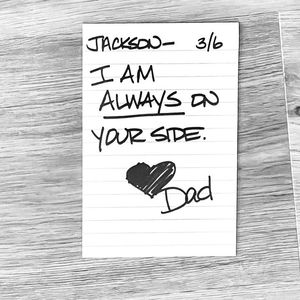 JACKSON— 3/6
I AM
ALWAYS ON
YOUR SIDE.
Dad